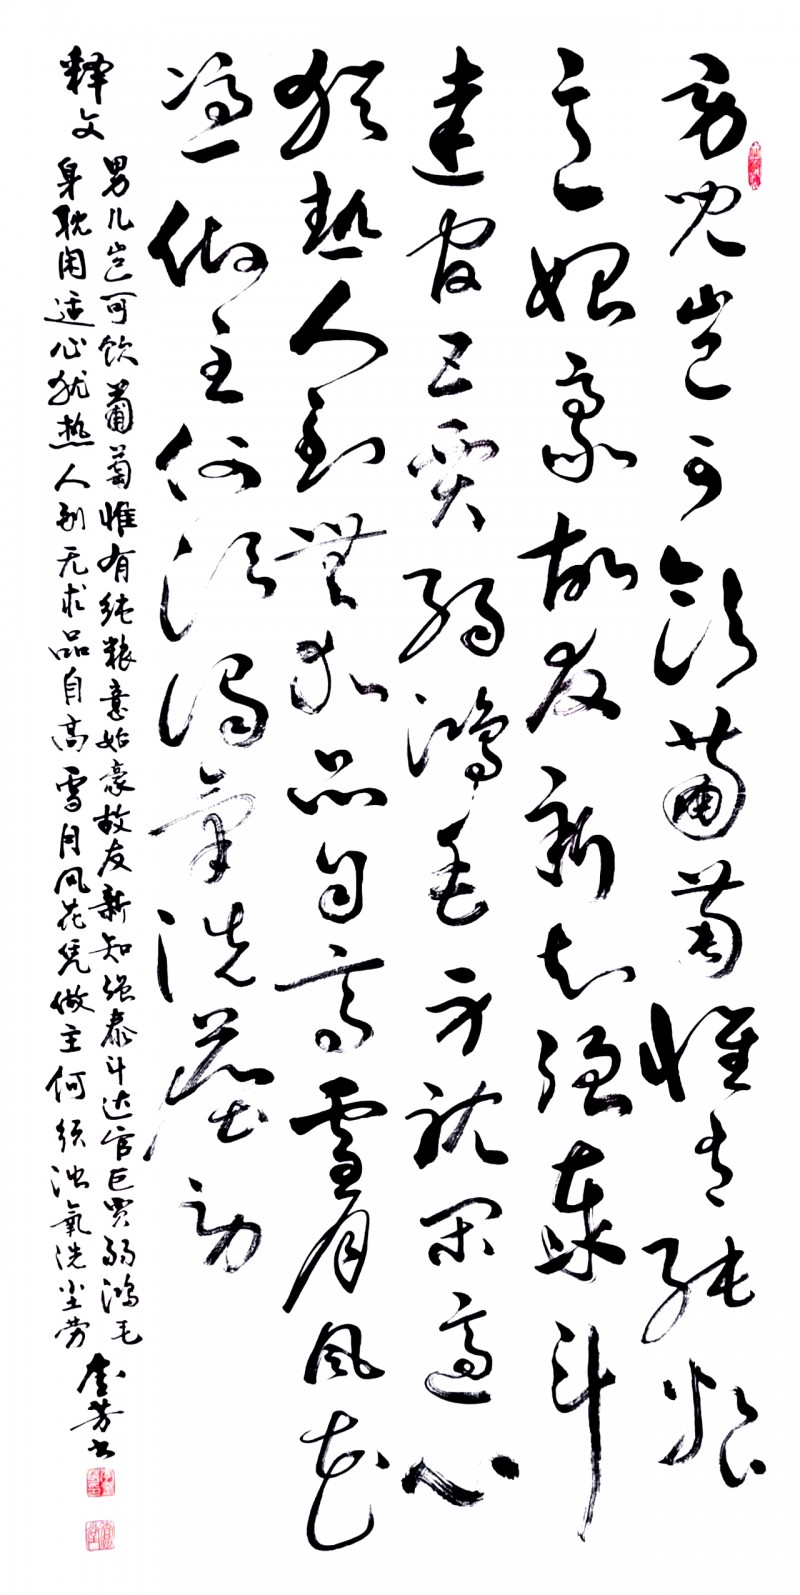 男儿岂可饮葡萄惟有纯粮
意始豪故友新知强泰斗
達官巨賈弱鴻毛身耽闲適心
犹热人到無求品自高雪月風花
凭做主何须浊氧洗尘劳
释文
男儿岂可饮葡萄惟有纯粮意始豪故友新知强泰斗达官巨贾弱鸿毛
身耽闲适心犹热人到无求品自高雪月风花凭做主何须浊氧洗尘劳
芳书